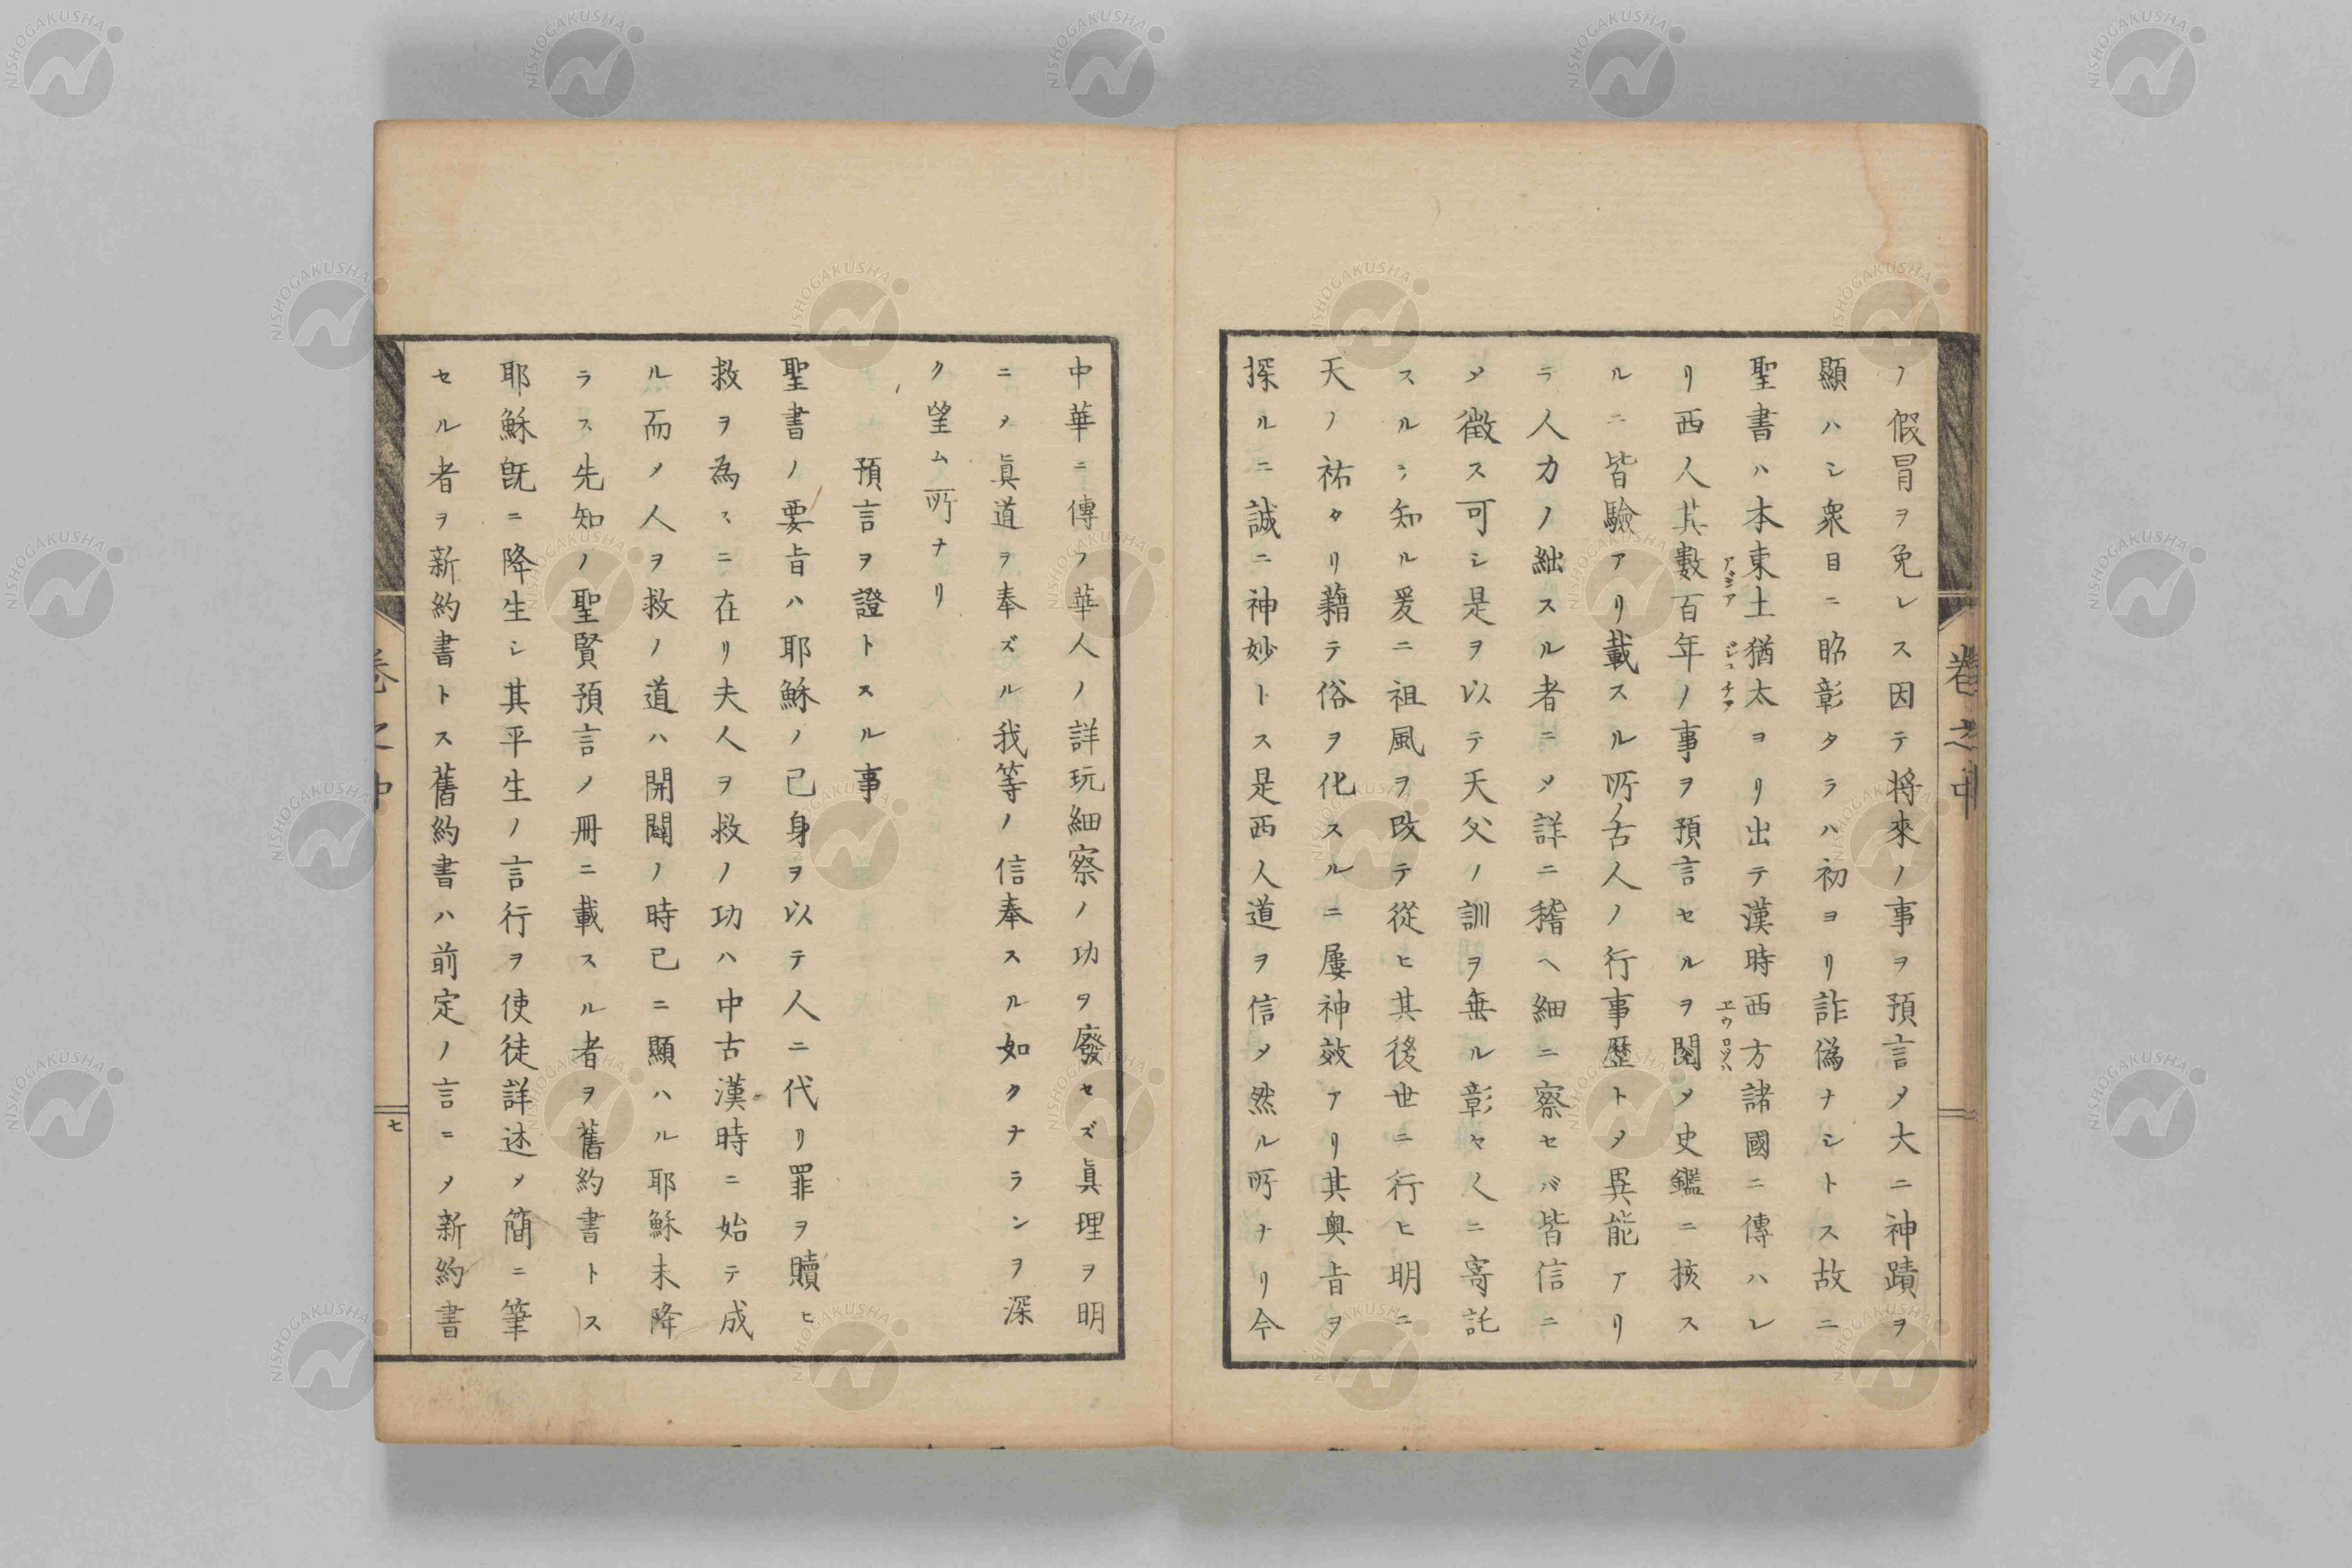 ノ假冒ヲ免レス因テ將來ノ事ヲ預言メ大ニ神蹟ヲ
顯ハシ衆目ニ昭彰タラハ初ヨリ詐偽ナシトス故ニ
聖書ハ本東土猶太ヨリ出テ漢時西方諸國ニ傳ハレ
アジア ジュデア エウロッパ
リ西人其數百年ノ事ヲ預言セルヲ閲メ史鑑ニ核ス
ルニ皆驗アリ載スル所ノ古人ノ行事歷トメ異能アリ
テ人力ノ絀スル者ニメ詳ニ稽ヘ細ニ察セバ皆信ニ
メ徵ス可シ是ヲ以テ天父ノ訓ヲ垂ル彰々人ニ寄託
スルヿ知ル爰ニ祖風ヲ改テ從ヒ其後世ニ行ヒ明ニ
天ノ祐タリ藉テ俗ヲ化スルニ屢神效アリ其奧旨ヲ
探ルニ誠ニ神妙トス是西人道ヲ信メ然ル所ナリ今
卷之中
中華ニ傳フ華人ノ詳玩細察ノ功ヲ廢セズ眞理ヲ明
ニメ眞道ヲ奉ズル我等ノ信奉スル如クナランヲ深
ク望ム所ナリ
預言ヲ證トスル事
聖書ノ要旨ハ耶穌ノ己身ヲ以テ人ニ代リ罪ヲ贖ヒ
救ヲ為スニ在リ夫人ヲ救ノ功ハ中古漢時ニ始テ成
ル而メ人ヲ救ノ道ハ開闢ノ時已ニ顯ハル耶穌未降
ラス先知ノ聖賢預言ノ冊ニ載スル者ヲ舊約書トス
耶穌既ニ降生シ其平生ノ言行ヲ使徒詳述メ簡ニ筆
セル者ヲ新約書トス舊約書ハ前定ノ言ニメ新約書
卷之中
七
NISHOGAKUSHA